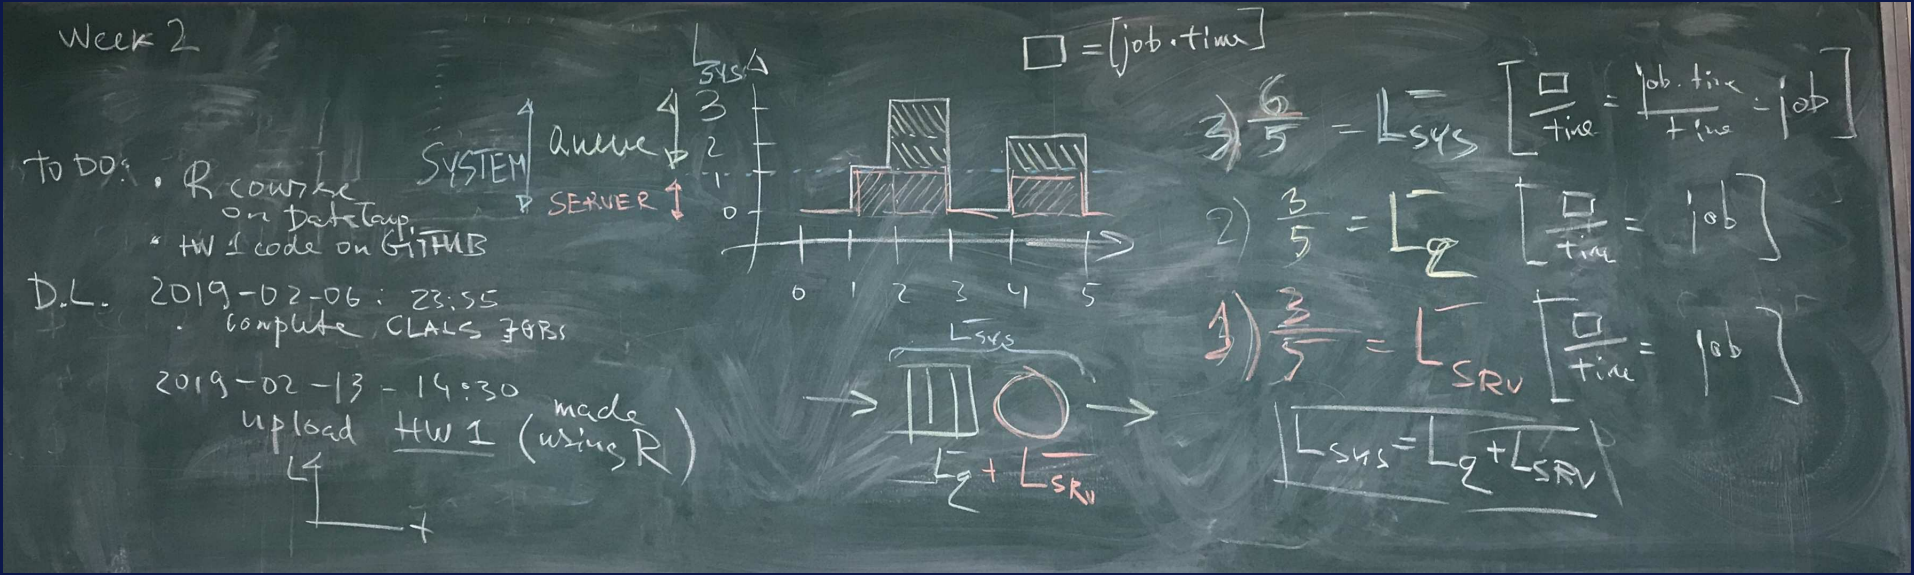 Week 2
TO DO:
· R course
on DataCamp
· HW 1 code on GITHUB
D.L. 2019-02-06: 23:55
· complete CLALS
2019-02-13 - 14:30
upload HW 1 (made using R)
L
t
L SYS
3
2
1
0
SYSTEM
Queue
SERVER
0 1 2 3 4 5
L̅sys
L̅q + L̅SRV
□ = [job·time]
3) 6/5 = L̅sys [□/time = job·time/time = job]
2) 3/5 = L̅q [□/time = job]
1) 3/5 = L̅SRV [□/time = job]
L̅sys = L̅q + L̅SRV